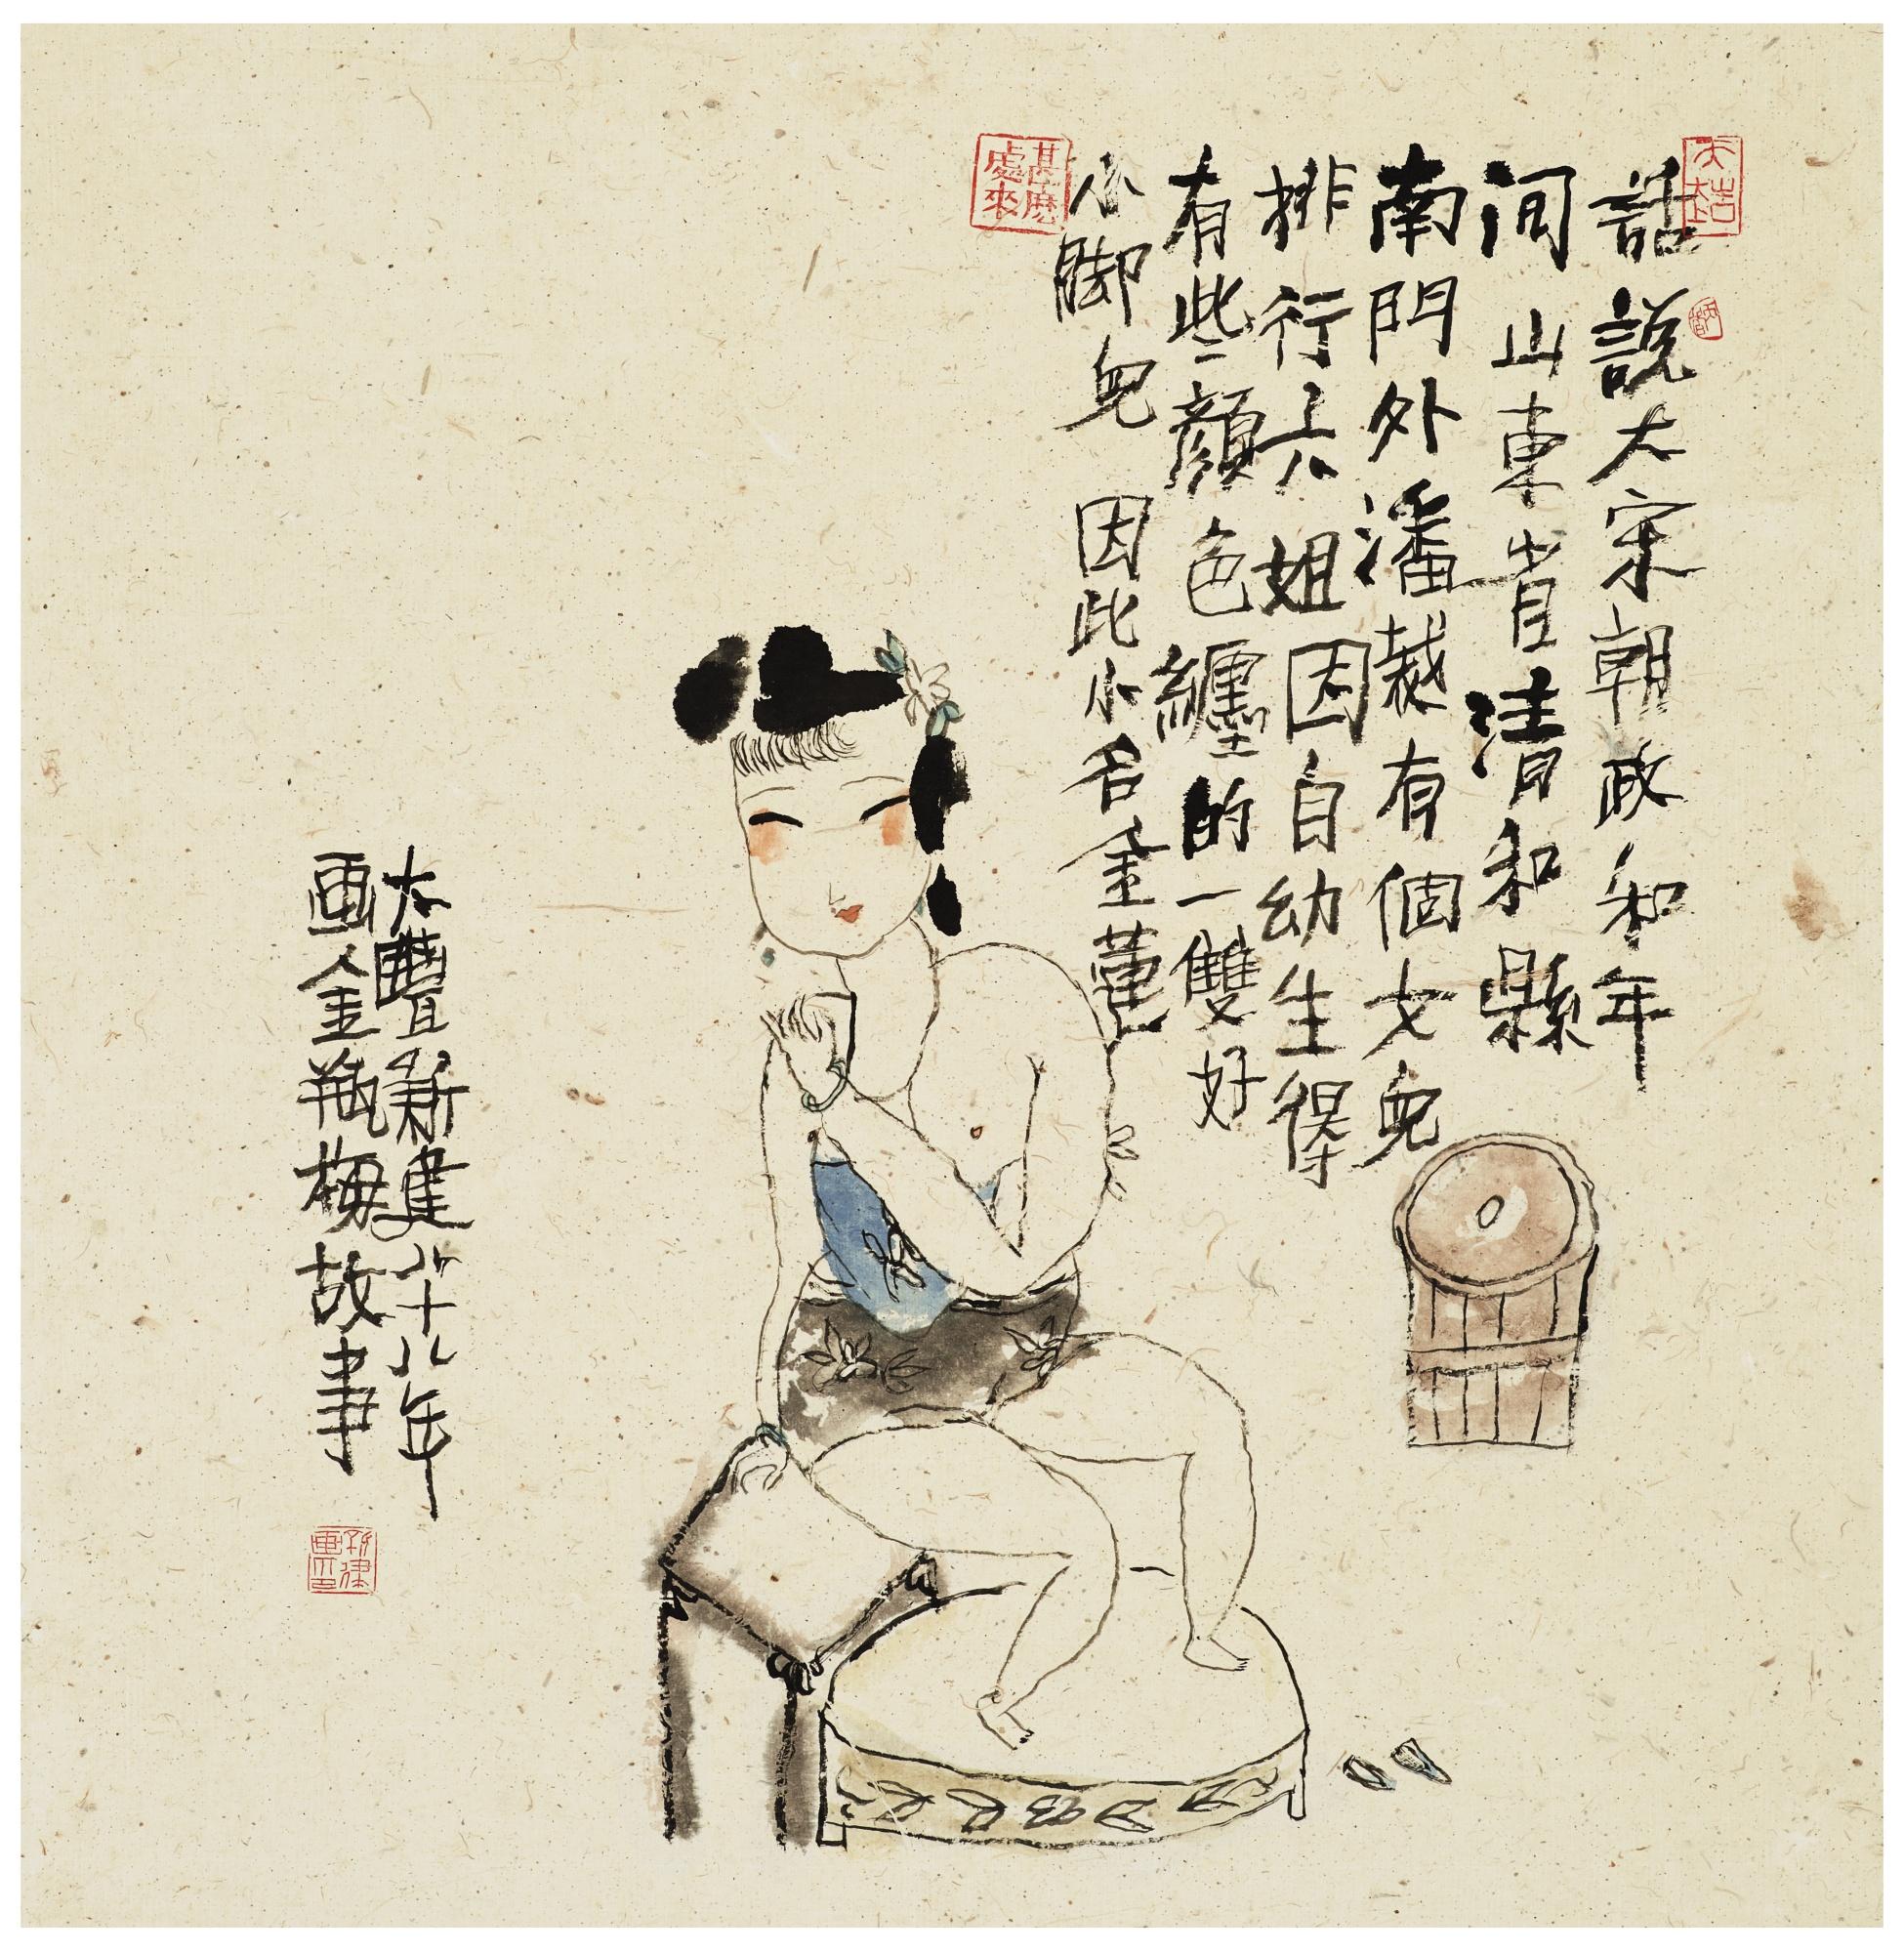 話說大宋朝政和年
间山東省清和縣
南門外潘裁有個女兒
排行六姐因自幼生得
有些顏色纏的一雙好
小脚兒因此小名金蓮
甚麽處來
大豐新建八十八年
畫金瓶梅故事
新建畫印